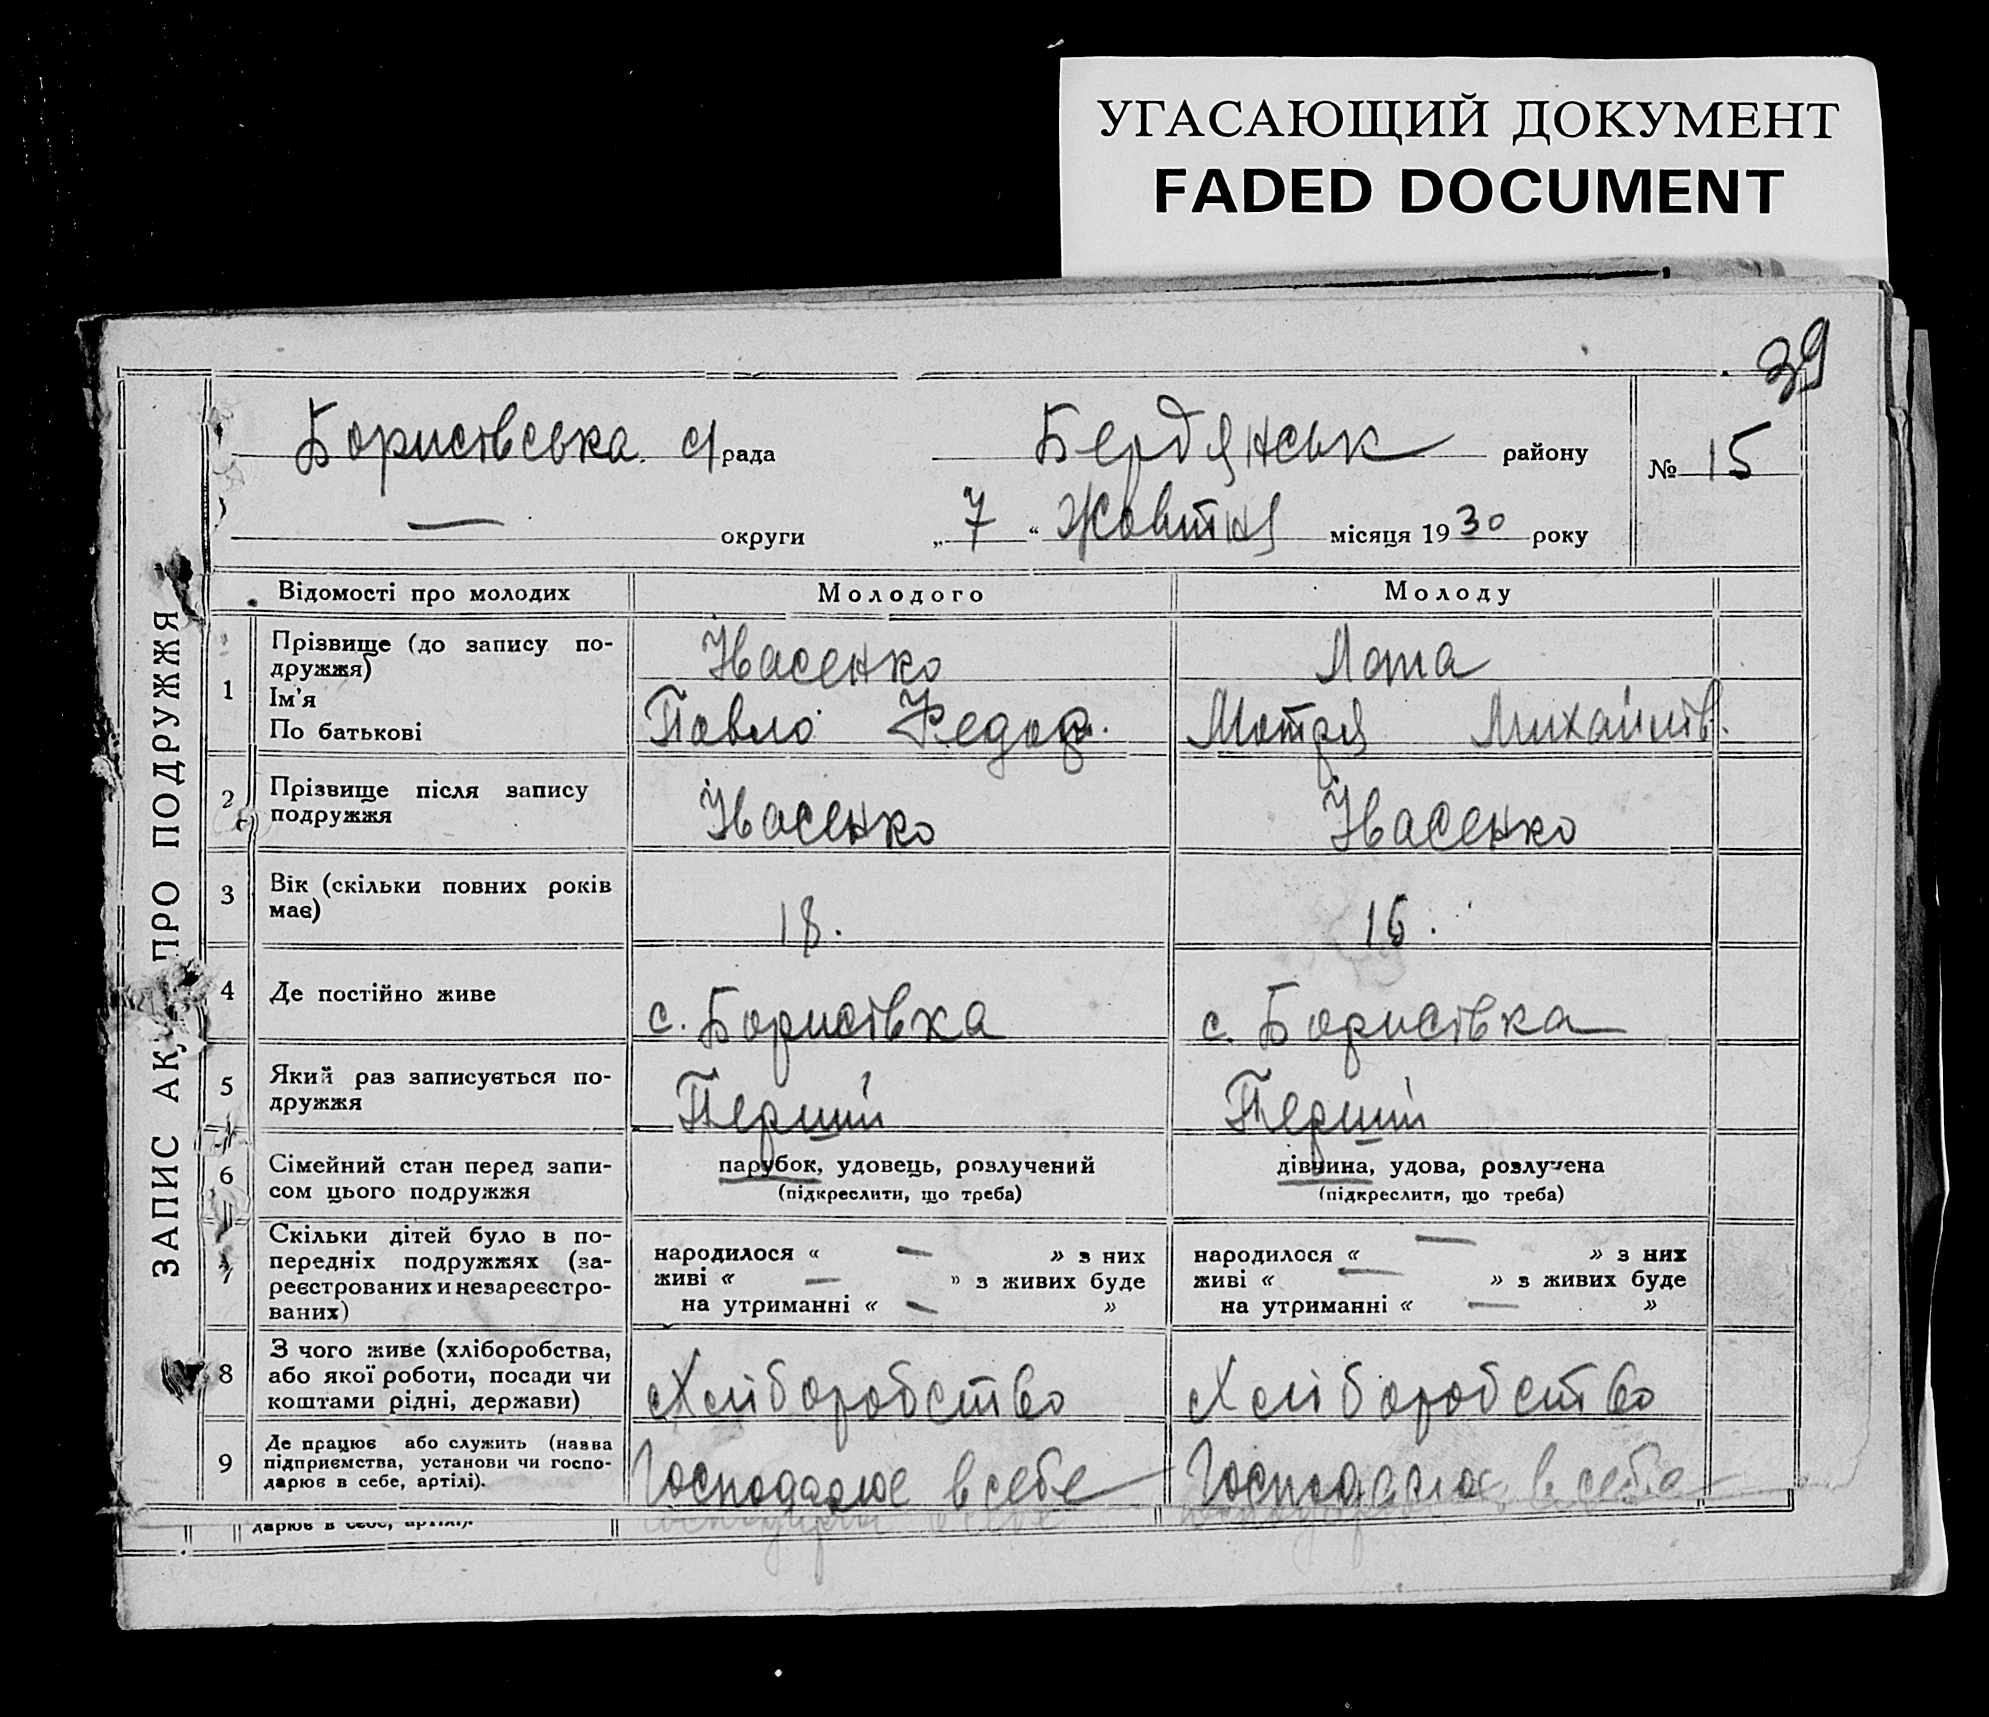 УГАСАЮЩИЙ ДОКУМЕНТ
FADED DOCUMENT
39
ЗАПИС АК ПРО ПОДРУЖЖЯ
Борисівська с/рада Бердянськ району № 15
— округи „7“ Жовтня місяця 1930 року
Відомості про молодих Молодого Молоду
1 Прізвище (до запису по-
дружжя)
Ім'я
По батькові
Івасенко
Павло Федор.
Лата
Мотря Михайлів.
2 Прізвище після запису
подружжя
Івасенко Івасенко
3 Вік (скільки повних років
має)
18. 16.
4 Де постійно живе с. Борисівка с. Борисівка
5 Який раз записується по-
дружжя
Перший Перший
6 Сімейний стан перед запи-
сом цього подружжя
парубок, удовець, розлучений
(підкреслити, що треба)
дівчина, удова, розлучена
(підкреслити, що треба)
7 Скільки дітей було в по-
передніх подружжях (за-
реєстрованих и незареєстро-
ваних)
народилося « — » з них
живі « — » з живих буде
на утриманні « — »
народилося « — » з них
живі « — » з живих буде
на утриманні « — »
8 З чого живе (хліборобства,
або якої роботи, посади чи
коштами рідні, держави)
Хліборобство Хліборобство
9 Де працює або служить (назва
підприємства, установи чи госпо-
дарює в себе, артілі).
Господарює в себе Господарює в себе
дарює в себе, артілі).